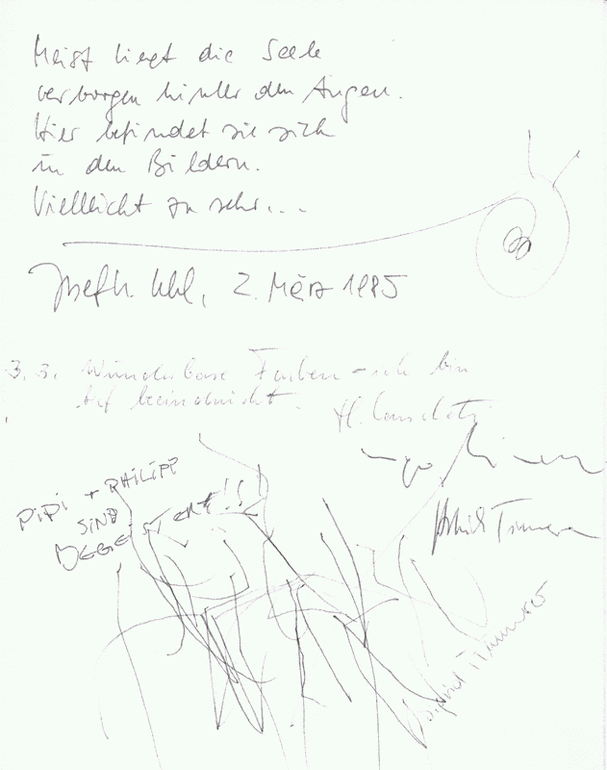 Meist liegt die Seele
verborgen hinter den Augen.
Hier befindet sie sich
in den Bildern.
Vielleicht zu sehr...
2. März 1985
3.3. Wunderbare Farben - ich bin
tief beeindruckt. H.
PIPI + PHILIPP
SIND
BEGEISTERT!!